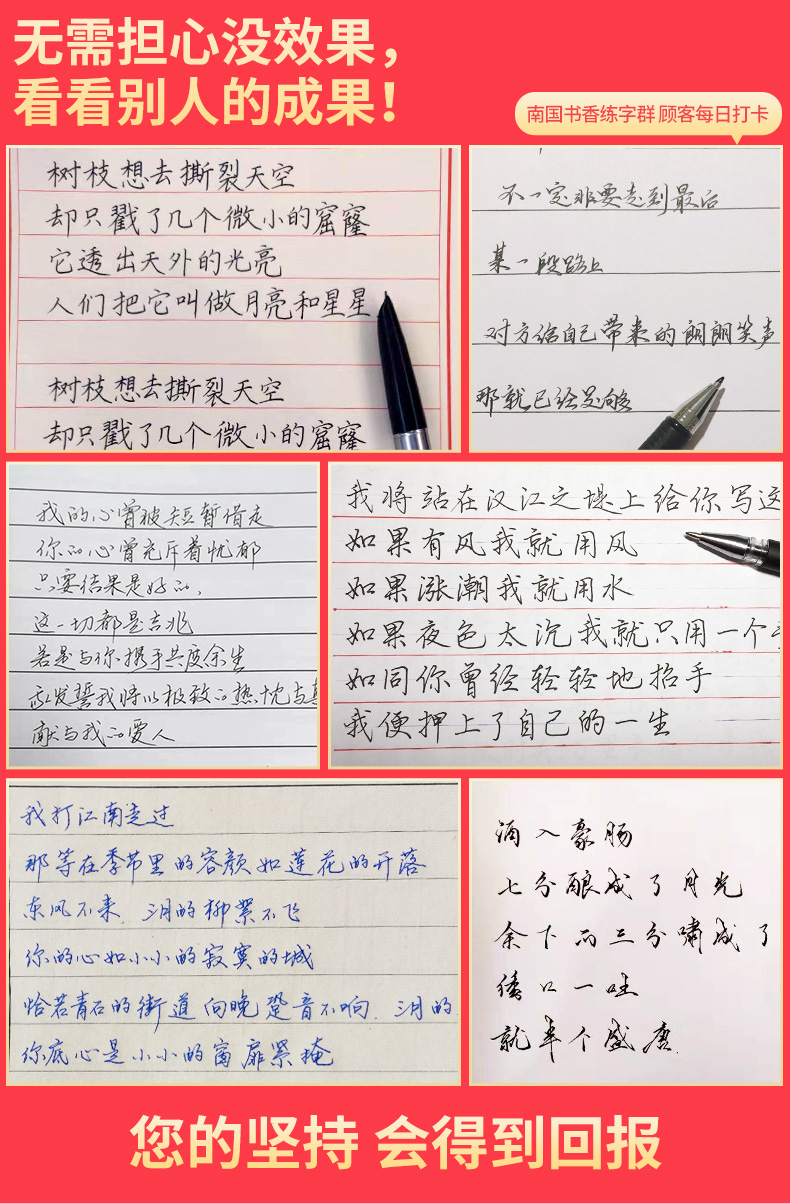 无需担心没效果，
看看别人的成果！
南国书香练字群 顾客每日打卡
树枝想去撕裂天空
却只戳了几个微小的窟窿
它透出天外的光亮
人们把它叫做月亮和星星
树枝想去撕裂天空
却只戳了几个微小的窟窿
不一定非要走到最后
某一段路上
对方给自己带来的朗朗笑声
那就已经足够
我的心曾被短暂借走
你的心曾充斥着忧郁
只要结果是好的，
这一切都是吉兆
若是与你携手共度余生
我发誓我将以极致的热忱与真
献与我的爱人
我将站在汉江之堤上给你写这
如果有风我就用风
如果涨潮我就用水
如果夜色太沉我就只用一个手
如同你曾经轻轻地招手
我便押上了自己的一生
我打江南走过
那等在季节里的容颜如莲花的开落
东风不来，三月的柳絮不飞
你的心如小小的寂寞的城
恰若青石的街道向晚 跫音不响，三月的
你底心是小小的窗扉紧掩
酒入豪肠
七分酿成了月光
余下的三分啸成了
绣口一吐
就半个盛唐
您的坚持 会得到回报